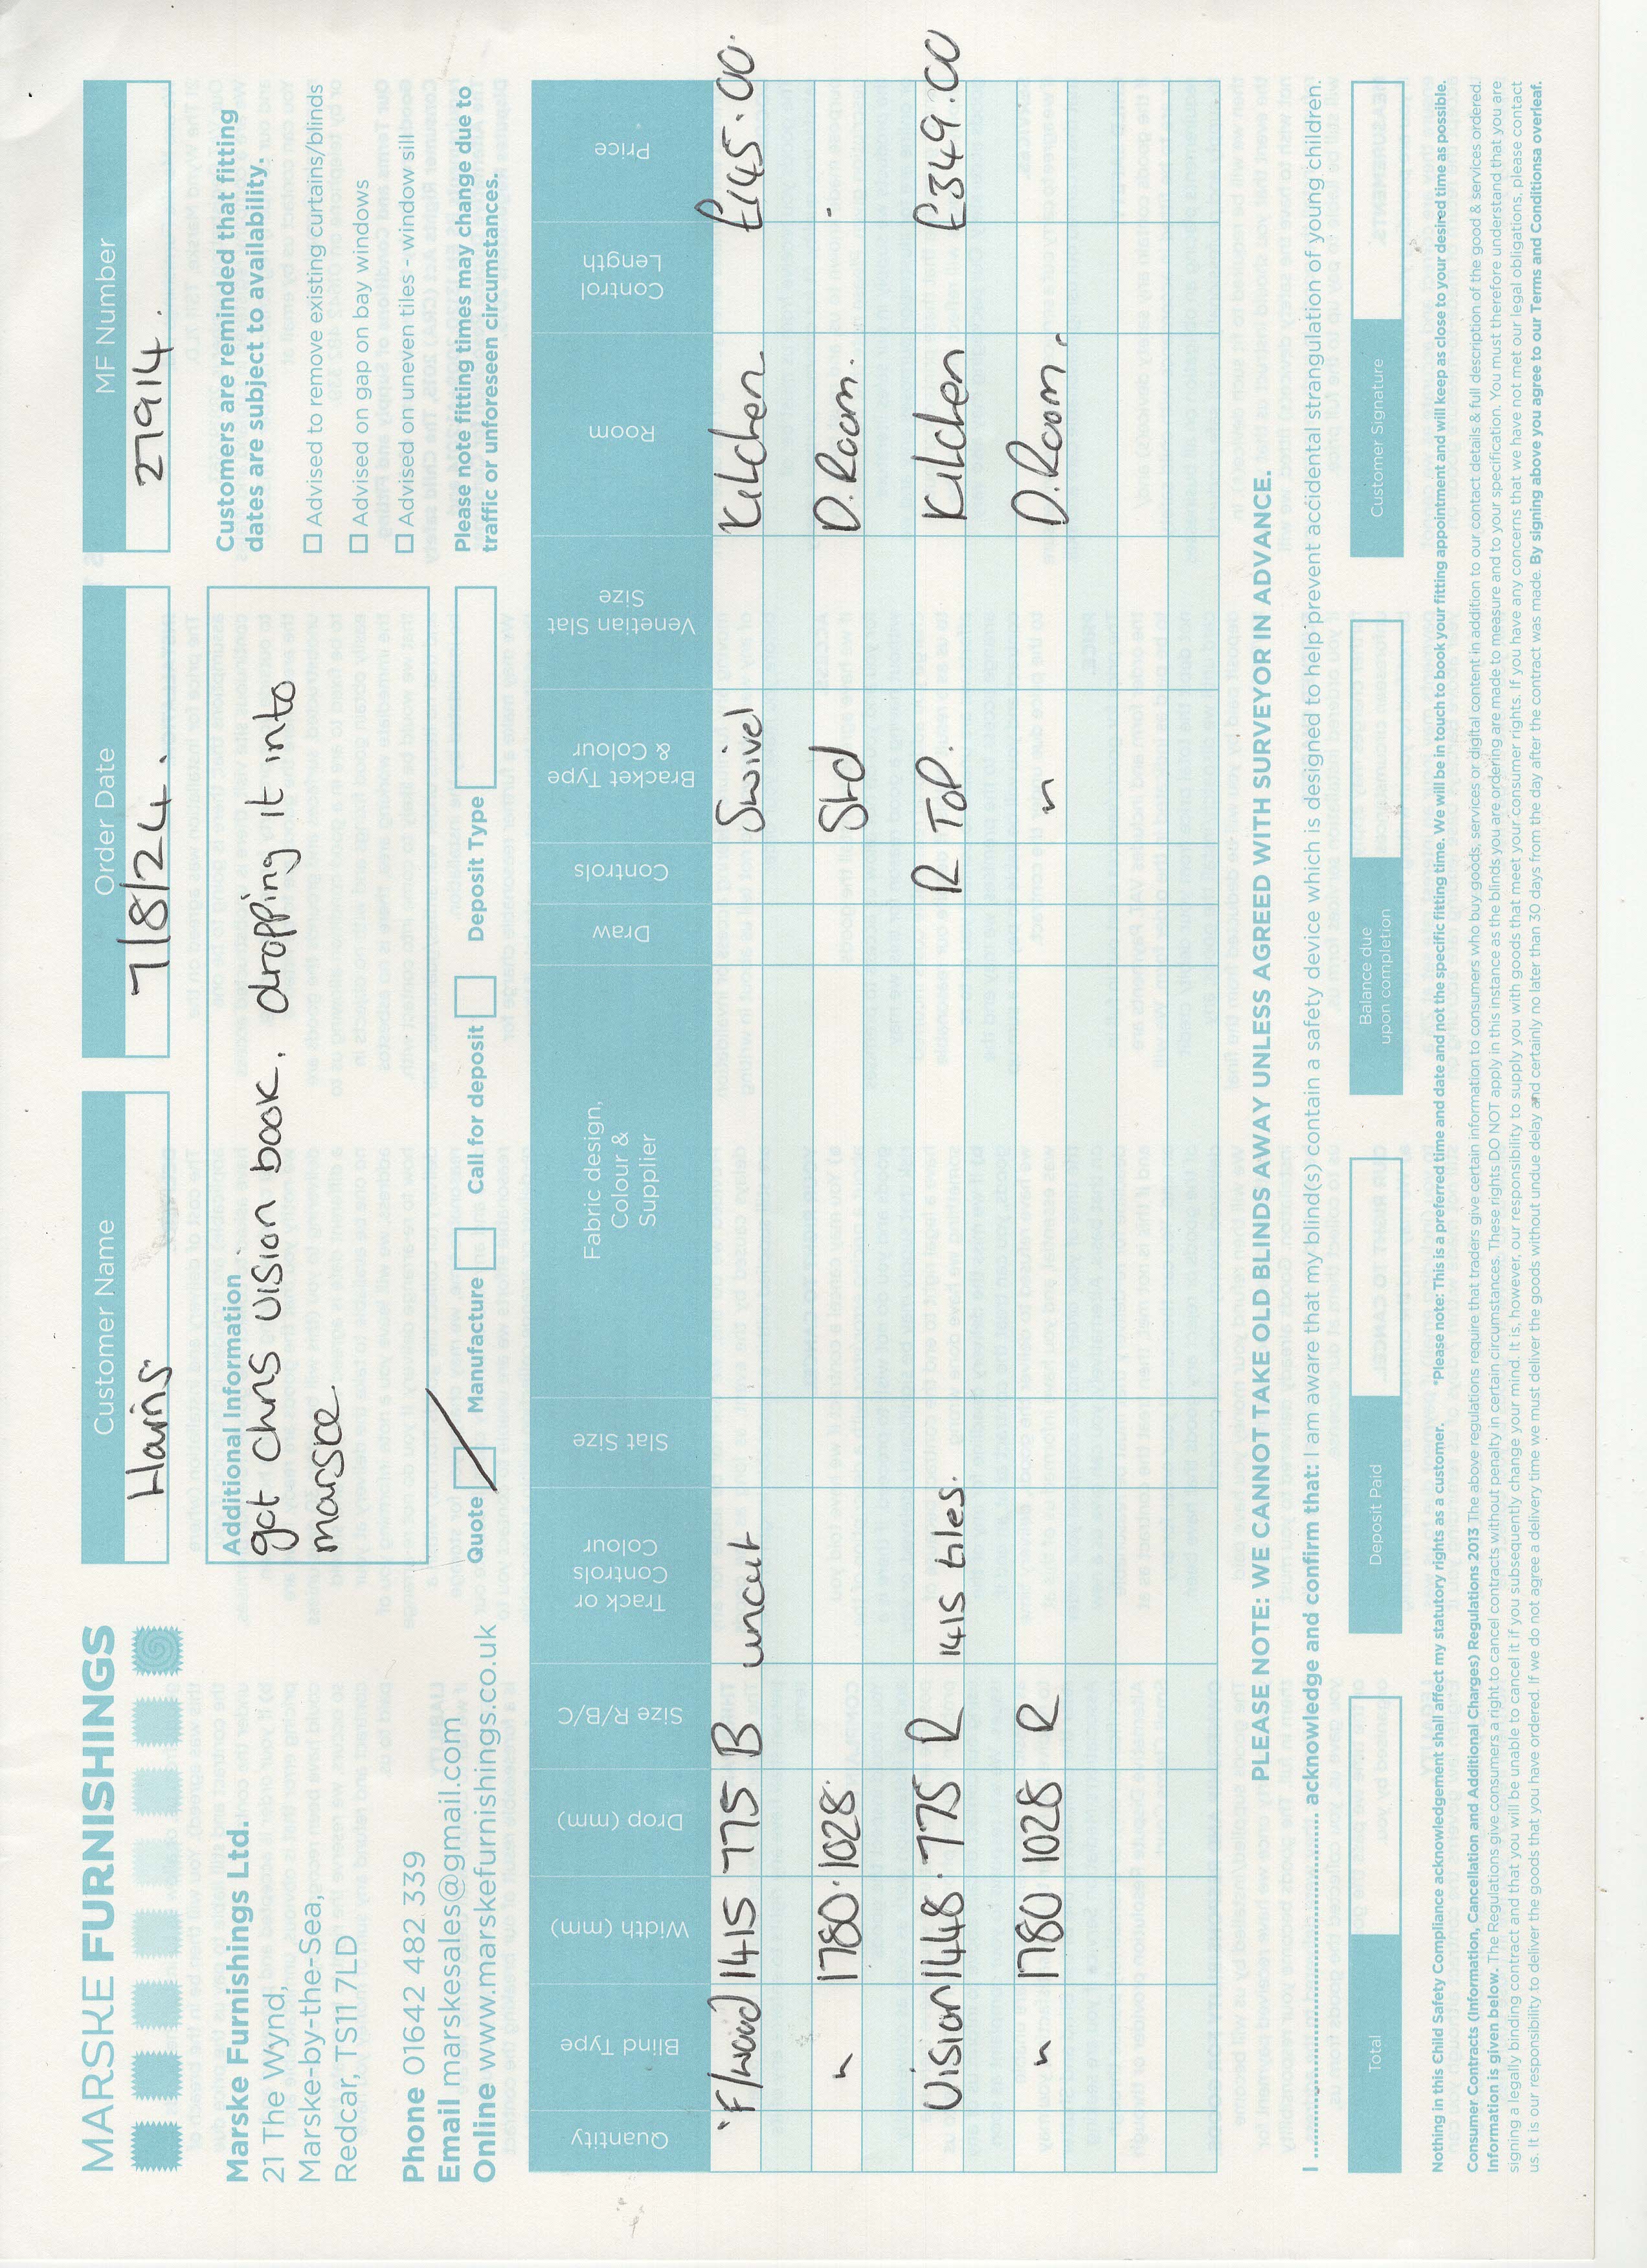 MARSKE FURNISHINGS
Marske Furnishings Ltd.
21 The Wynd,
Marske-by-the-Sea,
Redcar, TS11 7LD
Phone 01642 482 339
Email marskesales@gmail.com
Online www.marskefurnishings.co.uk
Customer Name
Harris
Order Date
7/8/24.
MF Number
27914.
Additional Information
got chris vision book. dropping it into
marske
Quote Manufacture Call for deposit Deposit Type
Customers are reminded that fitting
dates are subject to availability.
Advised to remove existing curtains/blinds
Advised on gap on bay windows
Advised on uneven tiles - window sill
Please note fitting times may change due to
traffic or unforeseen circumstances.
Quantity Blind Type Width (mm) Drop (mm) Size R/B/C Track or Controls Colour Slat Size Fabric design, Colour & Supplier Draw Controls Bracket Type & Colour Venetian Slat Size Room Control Length Price
F/wood 1415 775 B uncut Swivel Kitchen £145.00.
" 1780. 1028. Std D.Room.
Vision 1448. 775 R 1415 tiles. R TOP. Kitchen £349.00
" 1780 1028 R " D.Room.
PLEASE NOTE: WE CANNOT TAKE OLD BLINDS AWAY UNLESS AGREED WITH SURVEYOR IN ADVANCE.
I .................... acknowledge and confirm that: I am aware that my blind(s) contain a safety device which is designed to help prevent accidental strangulation of young children.
Total Deposit Paid Balance due upon completion Customer Signature
Nothing in this Child Safety Compliance acknowledgement shall affect my statutory rights as a customer. *Please note: This is a preferred time and date and not the specific fitting time. We will be in touch to book your fitting appointment and will keep as close to your desired time as possible.
Consumer Contracts (Information, Cancellation and Additional Charges) Regulations 2013 The above regulations require that traders give certain information to consumers who buy goods, services or digital content in addition to our contact details & full description of the good & services ordered.
Information is given below. The Regulations give consumers a right to cancel contracts without penalty in certain circumstances. These rights DO NOT apply in this instance as the blinds you are ordering are made to measure and to your specification. You must therefore understand that you are
signing a legally binding contract and that you will be unable to cancel it if you subsequently change your mind. It is, however, our responsibility to supply you with goods that meet your consumer rights. If you have any concerns that we have not met our legal obligations, please contact
us. It is our responsibility to deliver the goods that you have ordered. If we do not agree a delivery time we must deliver the goods without undue delay and certainly no later than 30 days from the day after the contract was made. By signing above you agree to our Terms and Conditionsa overleaf.